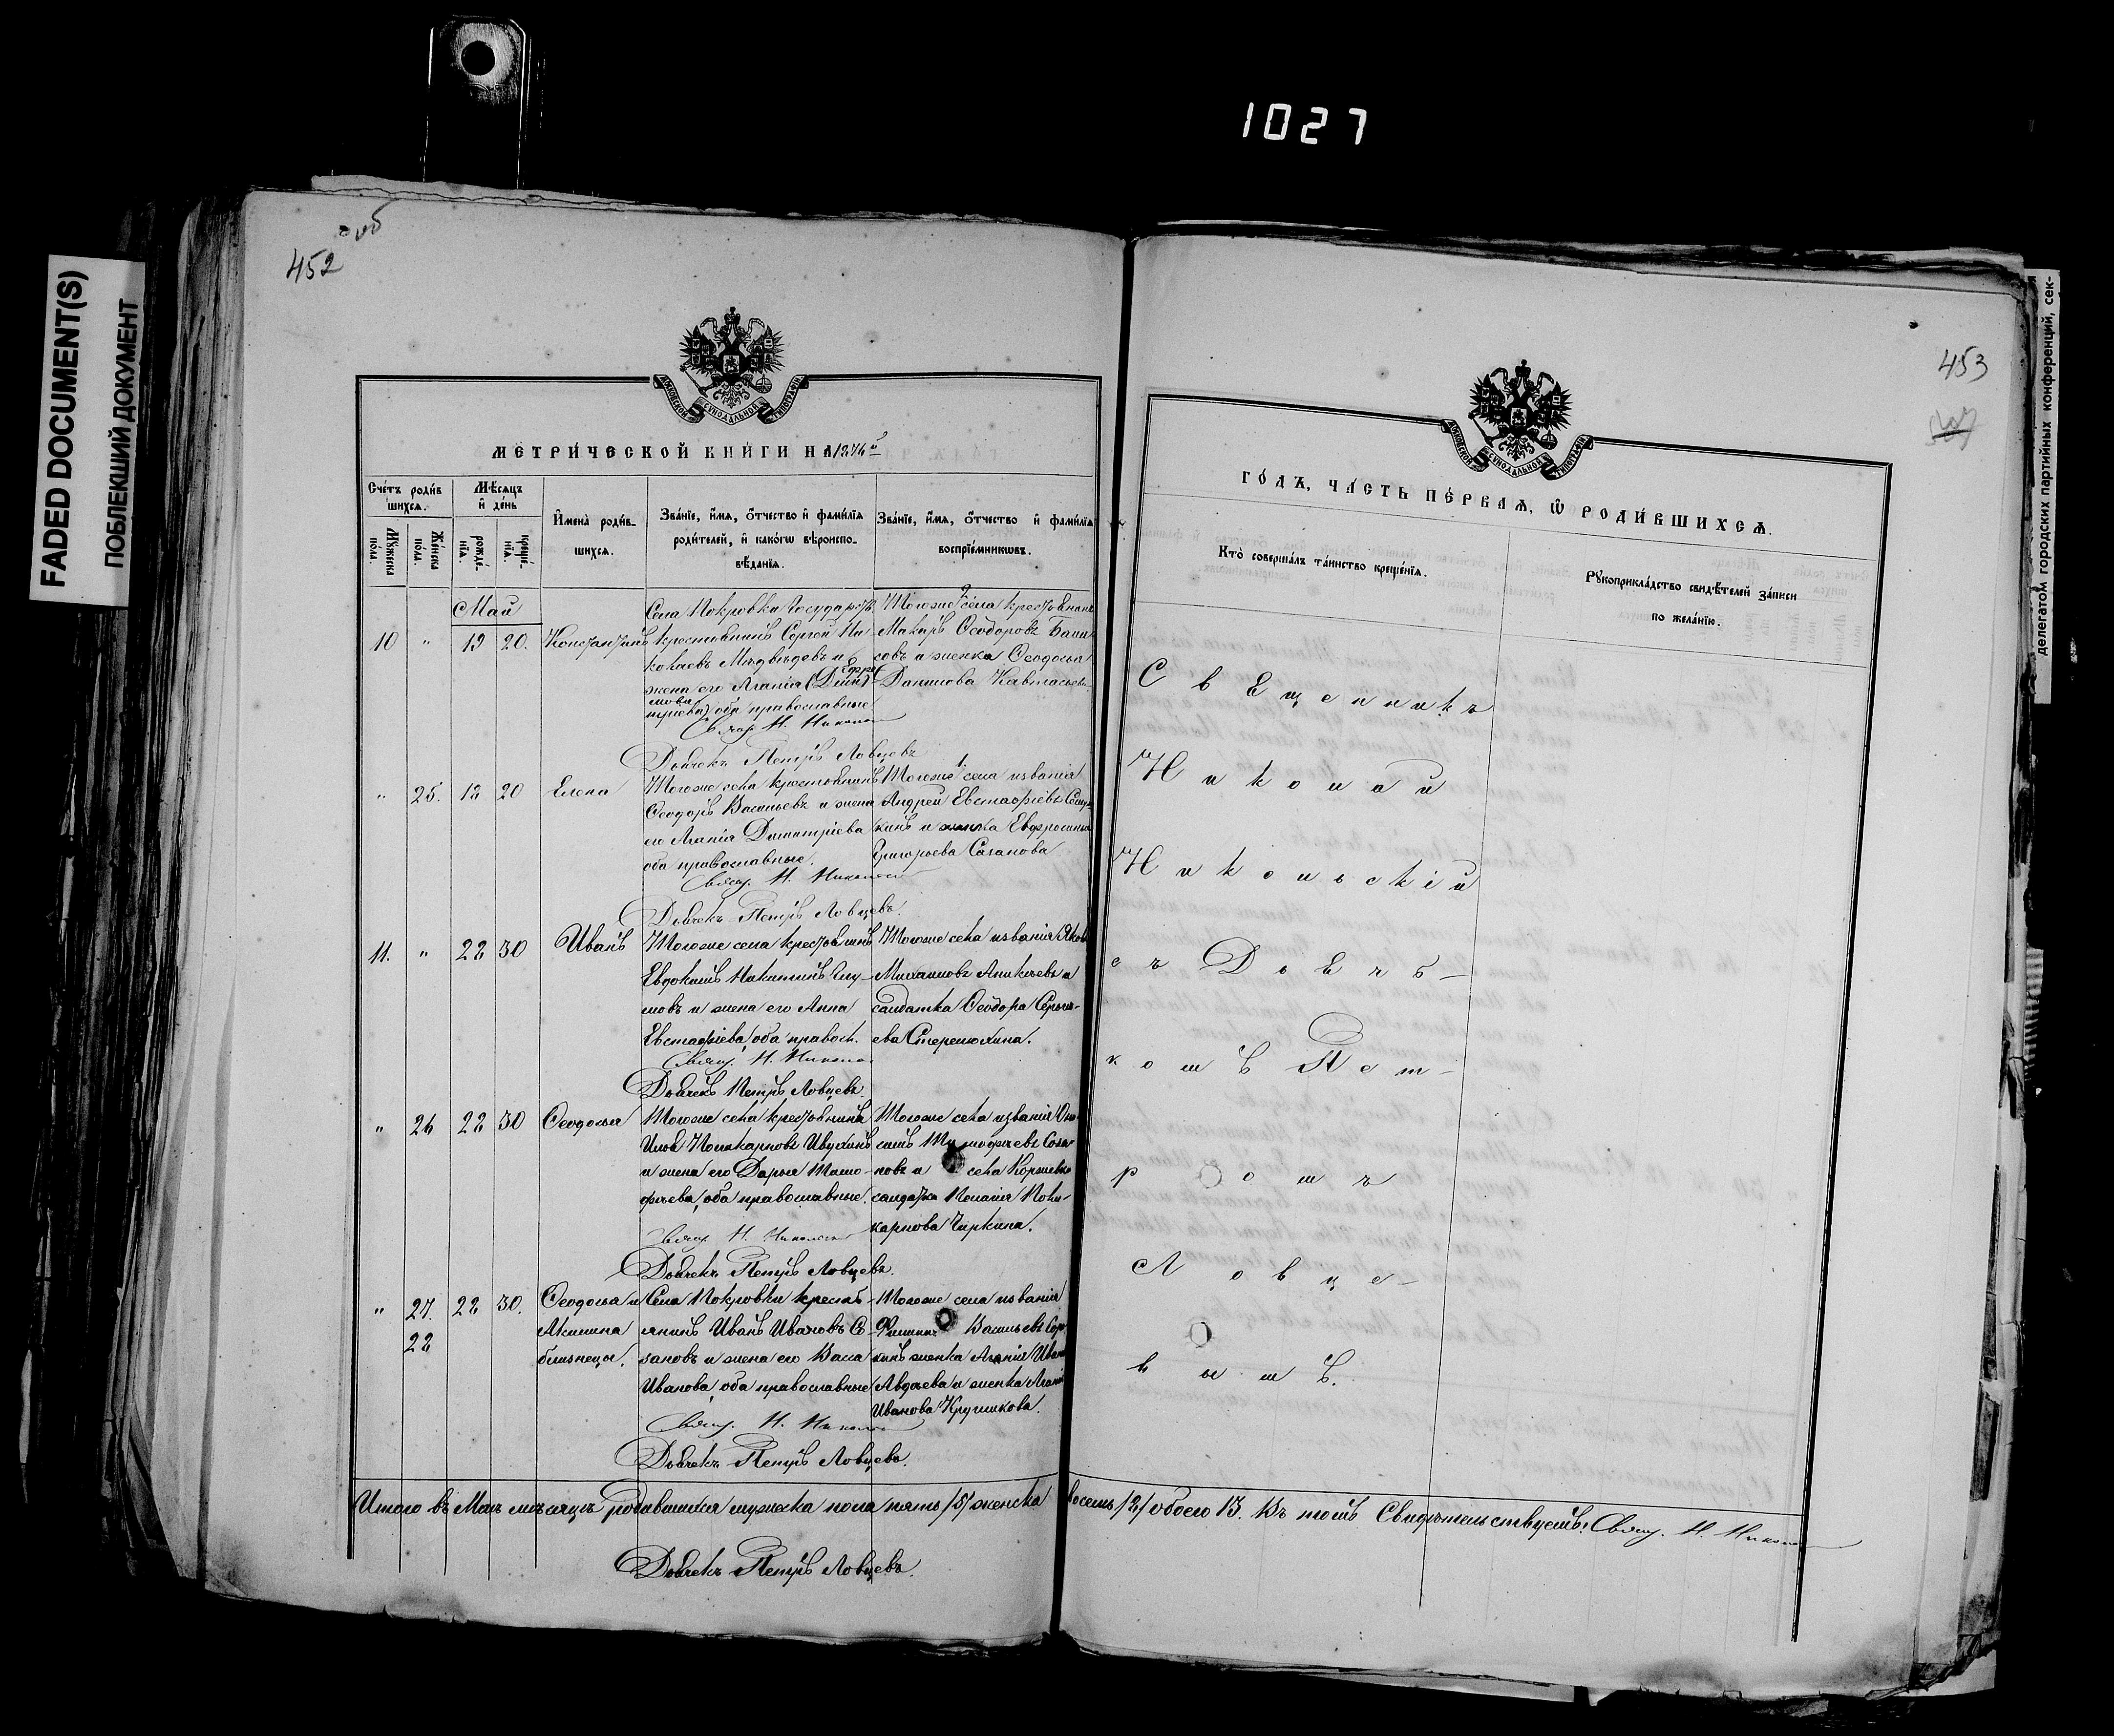 1027
FADED DOCUMENT(S)
ПОБЛЕКШИЙ ДОКУМЕНТ
делегатом городских партийных конференций, сек-
452 об
453
МОСКОВСКОЙ СѴНОДАЛЬНОЙ ТИПОГРАФІИ
МЕТРИ́ЧЕСКОЙ КНИ́ГИ НА 1876й
Сче́тъ роди́вшихсѧ.
Мꙋ́жеска по́ла.
Же́нска по́ла.
Мѣ́сѧцъ и҆ де́нь
рожде́нїѧ.
креще́нїѧ.
И҆мена̀ роди́вшихсѧ.
Зва́нїе, и҆́мѧ, ѻ҆́тчество и҆ фами́лїѧ роди́телей, и҆ како́гѡ вѣроисповѣ́данїѧ.
Зва́нїе, и҆́мѧ, ѻ҆́тчество и҆ фами́лїѧ воспрїе́мникѡвъ.
Май
10 " 18 20. Константинъ
Села Покровка Государств.
крестьянинъ Сергей Ни-
колаевъ Медвѣдевъ и
жена его Агапія
оба православные
Свящ. Н. Никольс
Дьячекъ Петръ Ловцевъ
Тогоже села крестьянинъ
Макаръ Ѳеодоровъ
и женка Ѳеодосья
Данилова
" 25. 18 20 Елена
Тогоже села крестьянинъ
Ѳеодоръ Васильевъ и жена
его Агапія Димитріева
оба православные.
Свящ. Н. Никольс
Дьячекъ Петръ Ловцевъ.
Тогоже села званія
Андрей Евстафіевъ
и женка Евфросинья
Григорьева Сазанова
11. " 28 30 Иванъ
Тогоже села крестьянинъ
Евдокимъ Никитинъ Глу-
мовъ и жена его Анна
Евстафіева, оба правосл.
Свящ. Н. Никольс
Дьячекъ Петръ Ловцевъ.
Тогоже села званія Яковъ
Михаиловъ Аникѣевъ и
салдатка Ѳеодора Сергѣ-
ева Стерелюхина.
" 26 28 30 Ѳеодосья
Тогоже села крестьянинъ
Поликарповъ Ивухинъ
и жена его Дарья Тимо-
фѣева, оба православные.
Свящ. Н. Никольс
Дьячекъ Петръ Ловцевъ.
Тогоже села званія
Тимофѣевъ Соза-
новъ и села
салдатка Пелагія Поли-
карпова Чиркина.
" 27. 28 28 30. Ѳеодосья и
Акилина
близнецы.
Села Покровки кресть-
янинъ Иванъ Ивановъ Со-
зановъ и жена его Васса
Иванова, оба православные
Свящ. Н. Никольс
Дьячекъ Петръ Ловцевъ.
Тогоже села званія
Филиппъ Васильевъ
женка Агапія Иван
Авдѣева и женка
Иванова Кругликова.
Итого въ Маѣ мѣсяцѣ родившихся мужеска пола пять /5/ женска восемь /8/ обоего 13. Въ томъ Свидѣтельствуемъ: Свящ. Н. Никольс
Дьячекъ Петръ Ловцевъ.
МОСКОВСКОЙ СѴНОДАЛЬНОЙ ТИПОГРАФІИ
ГО́ДЪ, ЧА́СТЬ ПЕ́РВАѦ, Ѡ҆ РОДИ́ВШИХСѦ.
Кто̀ соверша́лъ та́инство креще́нїѧ.
Рꙋкоприкла́дство свидѣ́телей за́писи по жела́нїю.
Священникъ
Николай
Никольскій
съ Дьяч-
комъ Пет-
ромъ
Ловце-
вымъ.